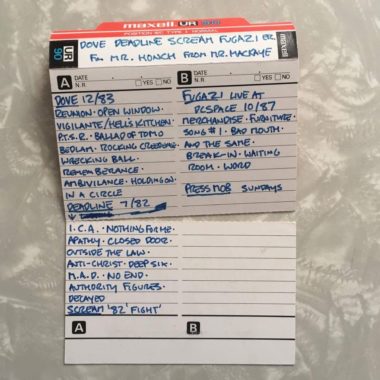 maxell UR
POSITION IEC TYPE I NORMAL
maxell
UR
90
DOVE DEADLINE SCREAM FUGAZI ER
FM MR. HONCH FROM MR. MACKAYE
A DATE
N.R. YES NO
DOVE 12/83
REUNION · OPEN WINDOW ·
VIGILANTE/HELL'S KITCHEN
P.T.S.R. · BALLAD OF TOMO
BEDLAM · ROCKING CREEDOME
WRECKING BALL ·
REMEMBERANCE ·
AMBIVILANCE · HOLDING ON
IN A CIRCLE
DEADLINE 7/82
I.C.A. · NOTHING FOR ME ·
APATHY · CLOSED DOOR ·
OUTSIDE THE LAW ·
ANTI-CHRIST · DEEP SIX ·
M.A.D. · NO END ·
AUTHORITY FIGURES ·
DECAYED
SCREAM '82 'FIGHT'
A
B DATE
N.R. YES NO
FUGAZI LIVE AT
DCSPACE 10/87
MERCHANDISE · FURNITURE ·
SONG #1 · BAD MOUTH
AND THE SAME ·
BREAK-IN · WAITING
ROOM · WORD
PRESS MOB SUNDAYS
B